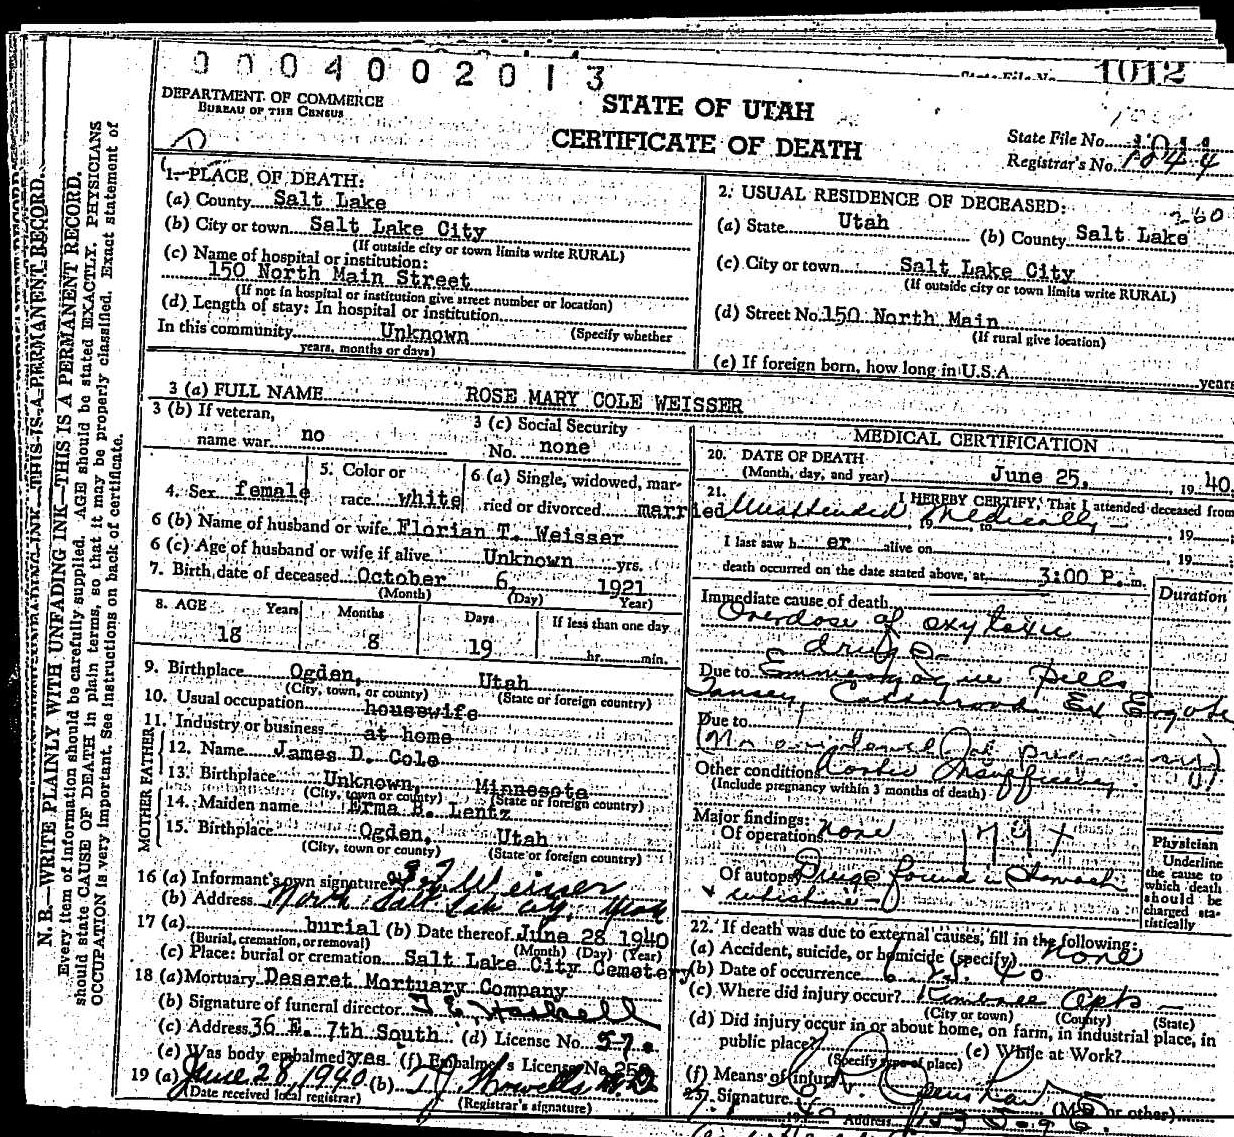 0004002013
State File No. 1012
DEPARTMENT OF COMMERCE
BUREAU OF THE CENSUS
STATE OF UTAH
CERTIFICATE OF DEATH
State File No.
Registrar's No. 1044
1. PLACE OF DEATH:
(a) County Salt Lake
(b) City or town Salt Lake City
(If outside city or town limits write RURAL)
(c) Name of hospital or institution:
150 North Main Street
(If not in hospital or institution give street number or location)
(d) Length of stay: In hospital or institution
In this community Unknown (Specify whether
years, months or days)
2. USUAL RESIDENCE OF DECEASED: 260
(a) State Utah (b) County Salt Lake
(c) City or town Salt Lake City
(If outside city or town limits write RURAL)
(d) Street No. 150 North Main
(If rural give location)
(e) If foreign born, how long in U.S.A. years
3 (a) FULL NAME ROSE MARY COLE WEISSER
3 (b) If veteran,
name war no
3 (c) Social Security
No. none
4. Sex female
5. Color or
race white
6 (a) Single, widowed, mar-
ried or divorced married
6 (b) Name of husband or wife Florian T. Weisser
6 (c) Age of husband or wife if alive Unknown yrs.
7. Birth date of deceased October 6, 1921
(Month) (Day) Year)
8. AGE Years Months Days If less than one day
18 8 19 hr. min.
9. Birthplace Ogden, Utah
(City, town, or county) (State or foreign country)
10. Usual occupation housewife
11. Industry or business at home
FATHER
12. Name James D. Cole
13. Birthplace Unknown, Minnesota
(City, town or county) (State or foreign country)
MOTHER
14. Maiden name Erma B. Lentz
15. Birthplace Ogden, Utah
(City, town or county) (State or foreign country)
16 (a) Informant's own signature Weisser
(b) Address North Salt Lake City, Utah
17 (a) burial (b) Date thereof June 28 1940
(Burial, cremation, or removal) (Month) (Day) (Year)
(c) Place: burial or cremation Salt Lake City Cemetery
18 (a) Mortuary Deseret Mortuary Company
(b) Signature of funeral director Haskell
(c) Address 36 E. 7th South (d) License No. 57.
(e) Was body embalmed? yes (f) Embalmer's License No.
19 (a) June 28, 1940 (b) Howells M.D.
(Date received local registrar) (Registrar's signature)
MEDICAL CERTIFICATION
20. DATE OF DEATH
(Month, day, and year) June 25, 19 40
21. I HEREBY CERTIFY, That I attended deceased from
Unattended Medically
to 19
I last saw h er alive on 19
death occurred on the date stated above, at 3:00 P. m.
Duration
Immediate cause of death
Overdose of oxytoxic
drugs
Due to Emmenagogue Pills
Tansey, Ex Ergote
Due to
Other conditions Aortic Insufficiency
(Include pregnancy within 3 months of death)
Major findings:
Of operations none
Of autopsy Drugs found in Stomach
+ intestine
Physician
Underline
the cause to
which death
should be
charged sta-
tistically
22. If death was due to external causes, fill in the following:
(a) Accident, suicide, or homicide (specify) None
(b) Date of occurrence 6 25 40
(c) Where did injury occur? Kimball Apts
(City or town) (County) (State)
(d) Did injury occur in or about home, on farm, in industrial place, in
public place? (Specify type of place) (e) While at Work?
(f) Means of injury
23. Signature (M.D. or other)
Address
N. B.—WRITE PLAINLY WITH UNFADING INK—THIS IS A PERMANENT RECORD.
Every item of information should be carefully supplied. AGE should be stated EXACTLY. PHYSICIANS
should state CAUSE OF DEATH in plain terms, so that it may be properly classified. Exact statement of
OCCUPATION is very important. See instructions on back of certificate.